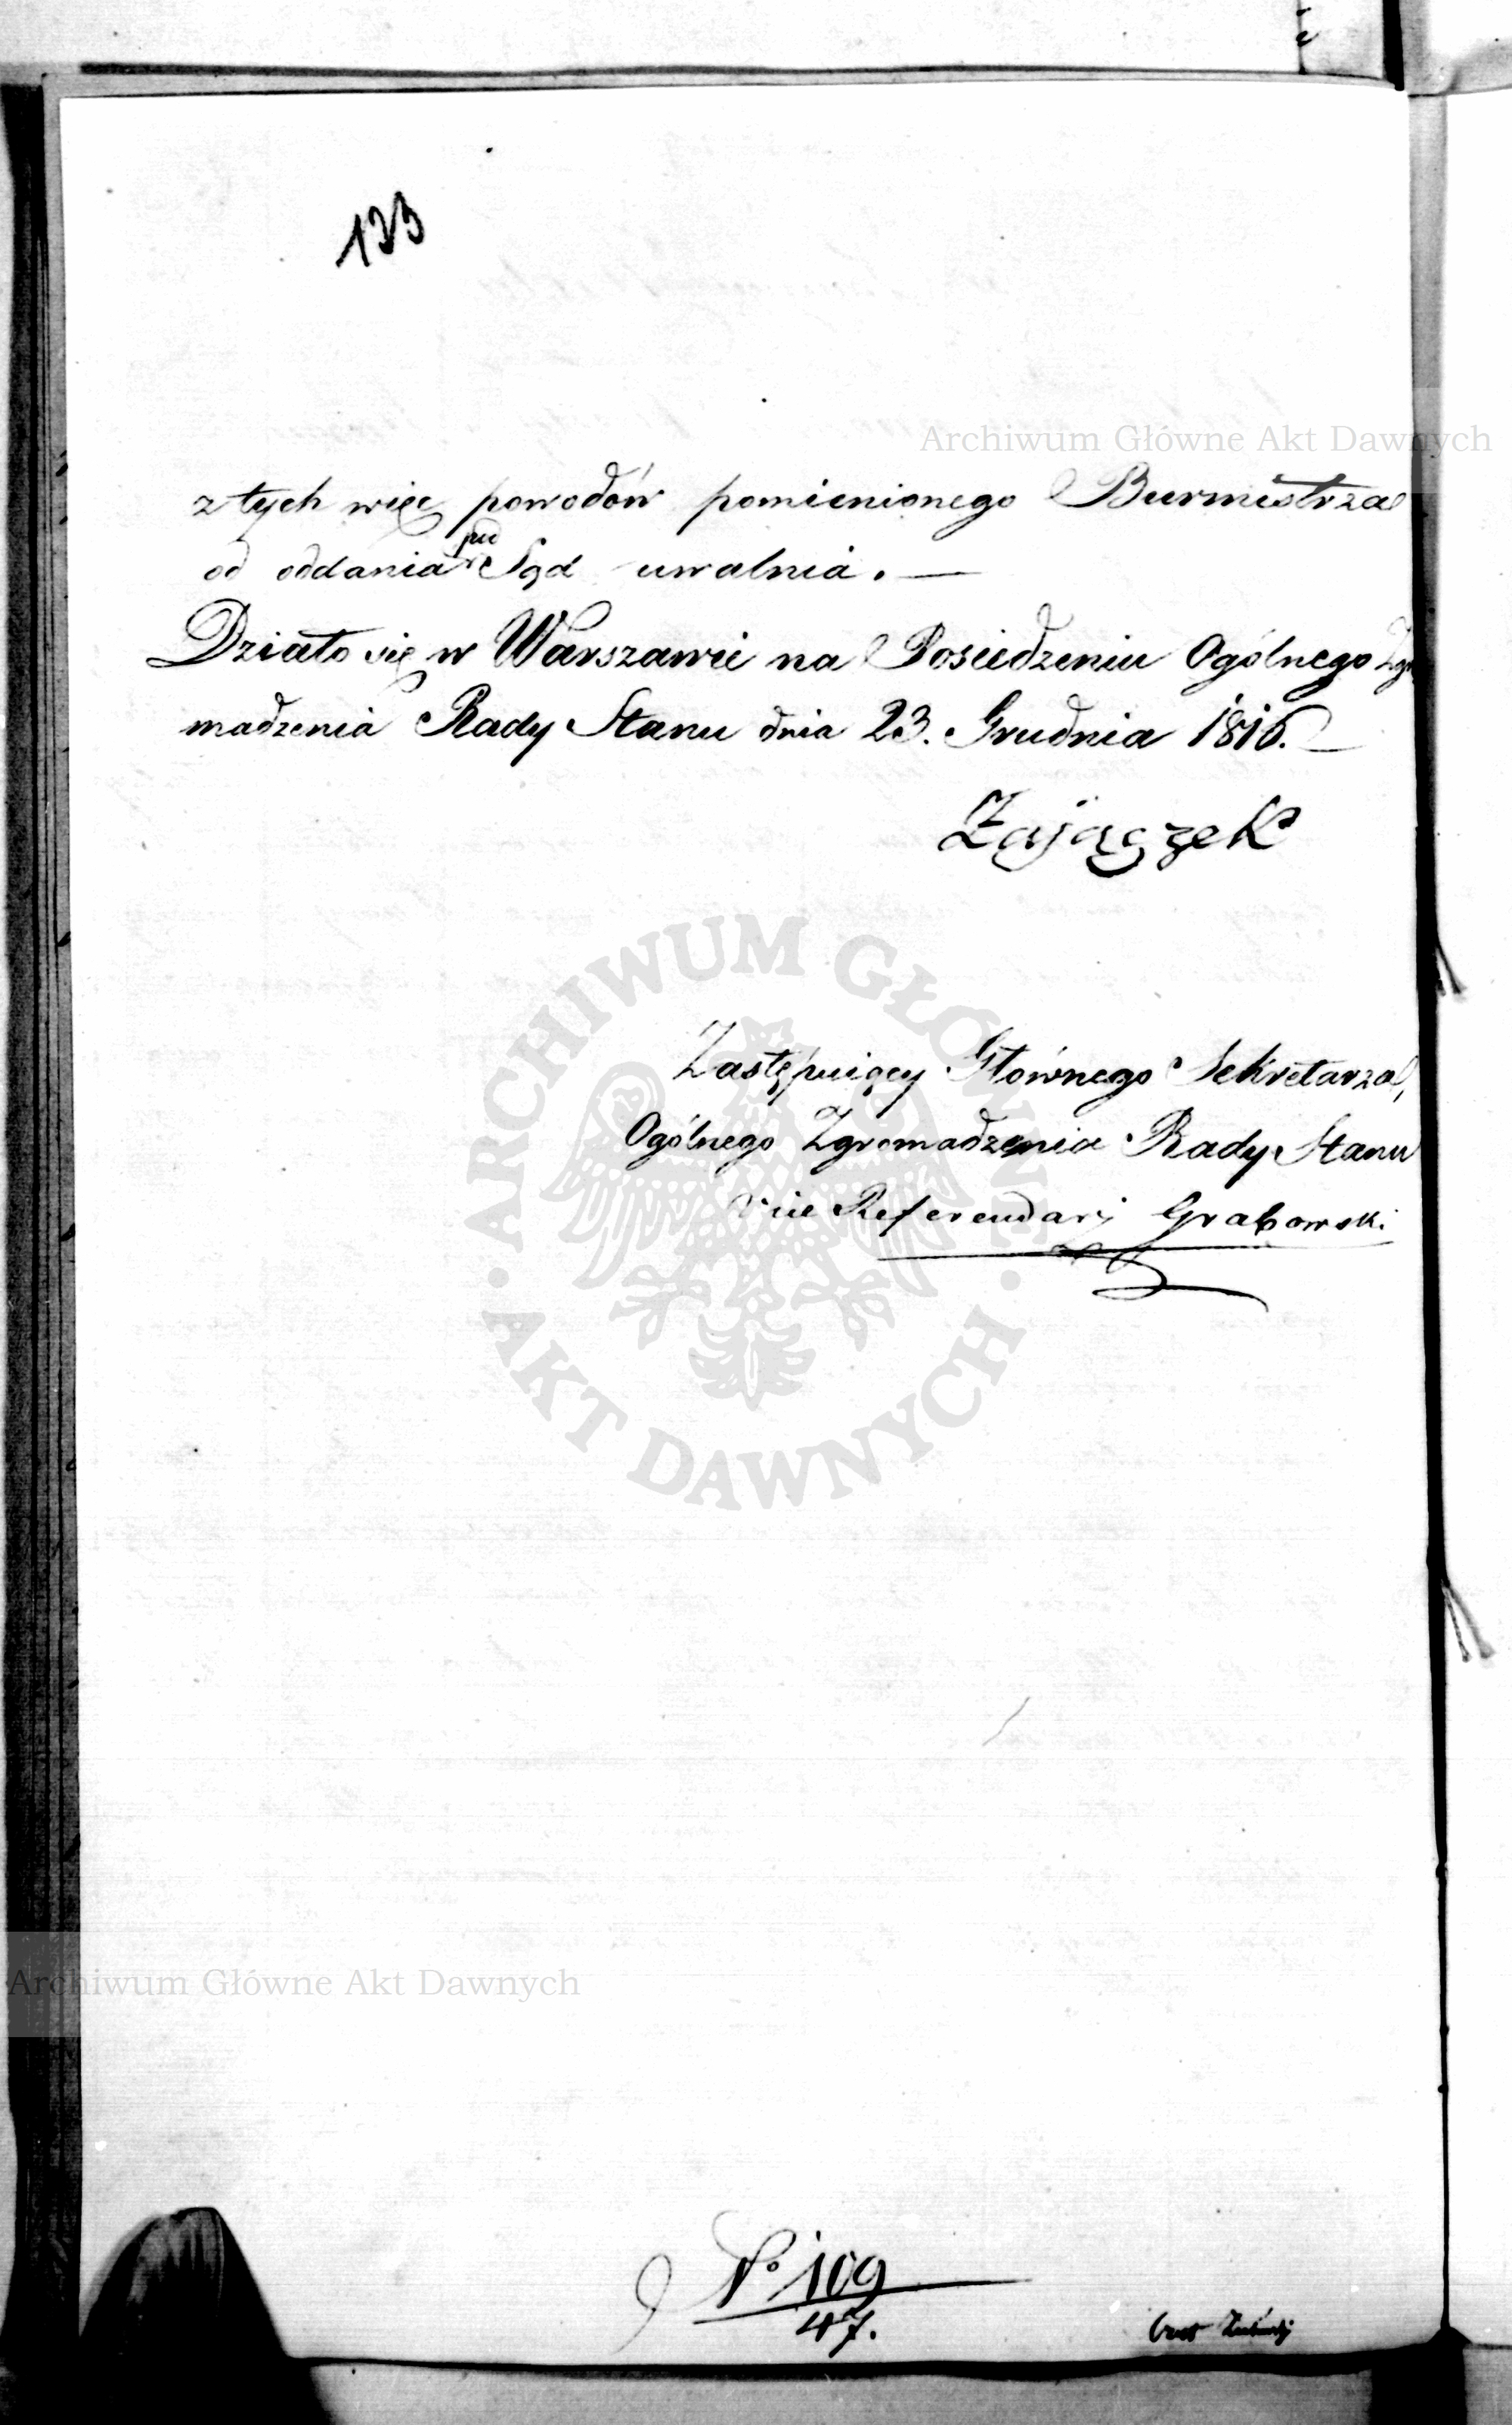 133
Archiwum Główne Akt Dawnych
z tych więc powodów pomienionego Burmistrza
od oddania pod Sąd uwalnia. —
Działo się w Warszawie na Posiedzeniu Ogólnego Zgr
madzenia Rady Stanu dnia 23. Grudnia 1816. —
Zajączek
ARCHIWUM GŁÓWNE
AKT DAWNYCH
Zastępuiący Głównego Sekretarza,
Ogólnego Zgromadzenia Rady Stanu
Vice Referendarz Grabowski
Archiwum Główne Akt Dawnych
No 109
47.